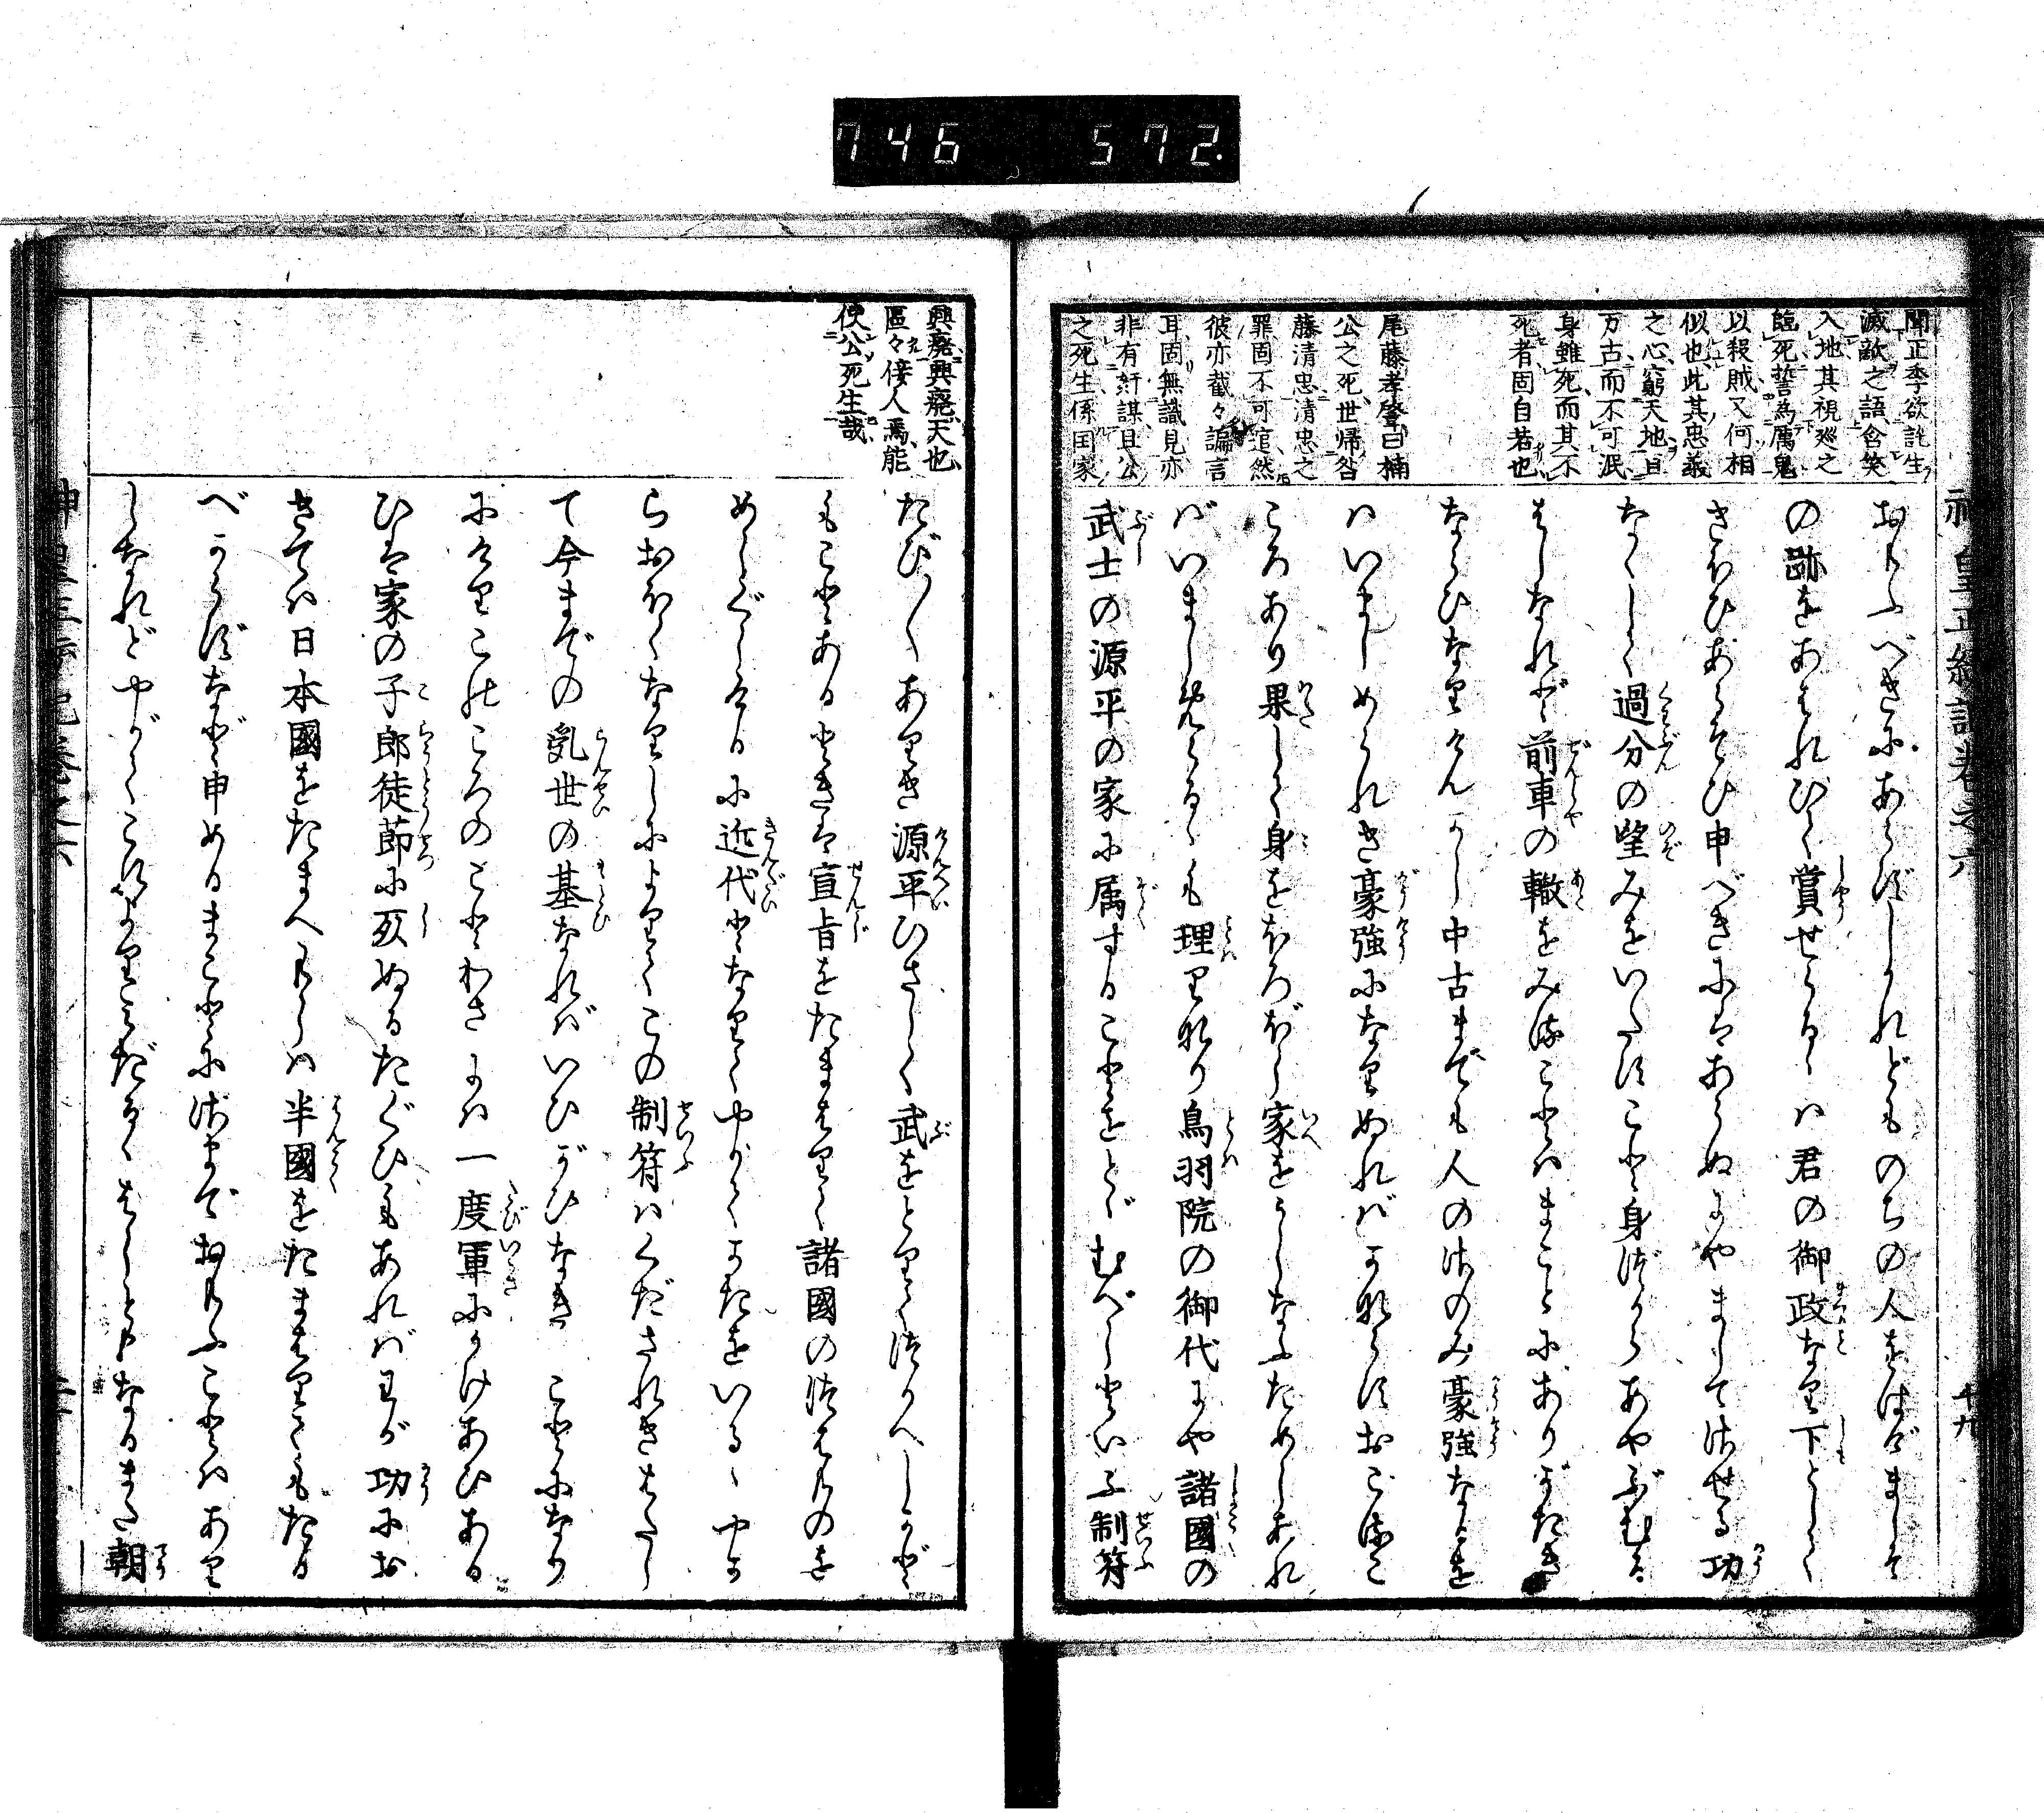 746 572.
神皇正統記巻之六 十九
聞正季欲託生
滅敵之語含笑
入地其視巡之
臨死誓為厲鬼
以殺賊又何相
似也此其忠義
之心窮天地亘
万古而不可泯
身雖死而其不
死者固自若也
尾藤孝肇曰楠
公之死世帰咎
藤清忠清忠之
罪固不可逭然
彼亦截々諞言
耳固無識見亦
非有奸謀且公
之死生係国家
おもふべきにあらずしかれどものちの人をはげまし
の跡をあはれびて賞せらるゝは君の御政なり下として
きほひあらそひ申べきにはあらぬにやましてさせる功
なくして過分の望みをいたすこと身づからあやぶむる
はしなれど前車の轍をみることはまことにありがたき
ならひなりけんかし中古までも人のさのみ豪強なるを
はいましめられき豪強になりぬればかならずおごるこ
ころあり果して身をほろぼし家をうしなふためしあれ
ばいましめらるゝも理りなり鳥羽院の御代にや諸國の
武士の源平の家に属することをとゞむべしといふ制符
興廃興廃天也
區々侫人焉能
使公死生哉
たび〳〵ありき源平ひさしく武をとりてつかへしかど
もことあるときは宣旨をたまはりて諸國のつはものを
めしぐしけるに近代となりてやがてかたをいるゝやか
らおほくなりしによりてこの制符はくだされきはたし
て今までの乱世の基なればいひがひなきことになり
にけりこのころのことわさには一度軍にかけあひある
ひは家の子郎徒節に死ぬるたぐひもあればわが功にお
きては日本國をたまへもしは半國をたまはりてもたる
べからずなど申めるまことにさまでおもふことはあり
しなれどやがてこれよりみだるゝはしともなるまた朝